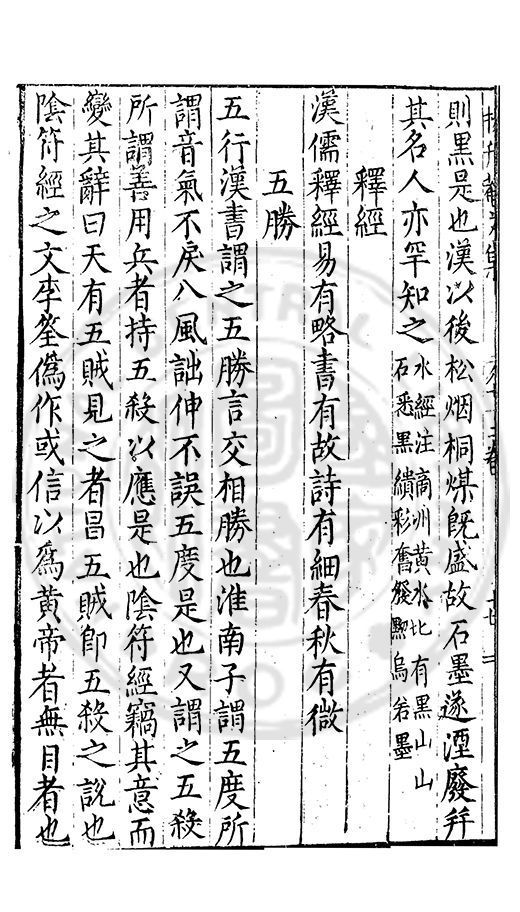 則黑是也漢以後松烟桐煤旣盛故石墨遂湮廢并
其名人亦罕知之水經注商州黃水北有黑山山
石悉黑繢彩奮發黝烏若墨
釋經
漢儒釋經易有略書有故詩有細春秋有微
五勝
五行漢書謂之五勝言交相勝也淮南子謂五度所
謂音氣不戾八風詘伸不誤五度是也又謂之五殺
所謂善用兵者持五殺以應是也陰符經竊其意而
變其辭曰天有五賊見之者昌五賊卽五殺之說也
陰符經之文李筌僞作或信以爲黃帝者無目者也